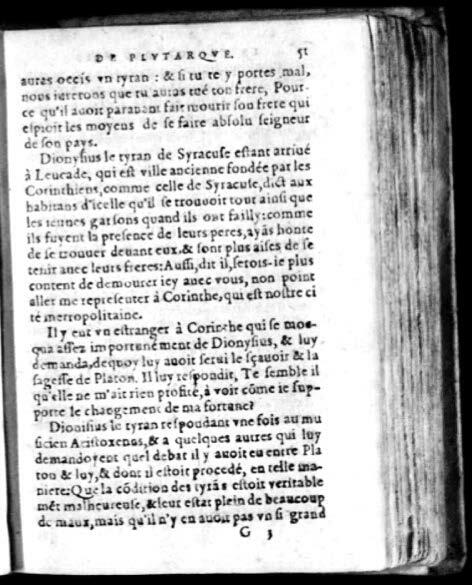 DE PLVTARQVE. 51
auras occis vn tyran : & si tu te y portes mal,
nous iurerons que tu auras tué ton frere, Pour-
ce qu'il auoit parauant fait mourir son frere qui
espioit les moyens de se faire absolu seigneur
de son pays.
Dionysius le tyran de Syracuse estant arriué
à Leucade, qui est ville ancienne fondée par les
Corinthiens, comme celle de Syracuse, dict aux
habitans d'icelle qu'il se trouuoit tout ainsi que
les ieunes garsons quand ils ont failly: comme
ils fuyent la presence de leurs peres, ayãs honte
de se trouuer deuant eux, & sont plus aises de se
tenir auec leurs freres: Aussi, dit il, serois-ie plus
content de demourer icy auec vous, non point
aller me representer à Corinthe, qui est nostre ci
té metropolitaine.
Il y eut vn estranger à Corinthe qui se moc-
qua assez importunément de Dionysius, & luy
demanda, dequoy luy auoit serui le sçauoir & la
sagesse de Platon. Il luy respondit, Te semble il
qu'elle ne m'ait rien profité, à voir cõme ie sup-
porte le changement de ma fortune?
Dionisius le tyran respondant vne fois au mu
sicien Aristoxenos, & a quelques autres qui luy
demandoyent quel debat il y auoit eu entre Pla
ton & luy, & dont il estoit procedé, en telle ma-
niere: Que la cõdition des tyrãs estoit veritable
mét malheureuse, & leur estat plein de beaucoup
de maux, mais qu'il n'y en auoit pas vn si grand
G 3